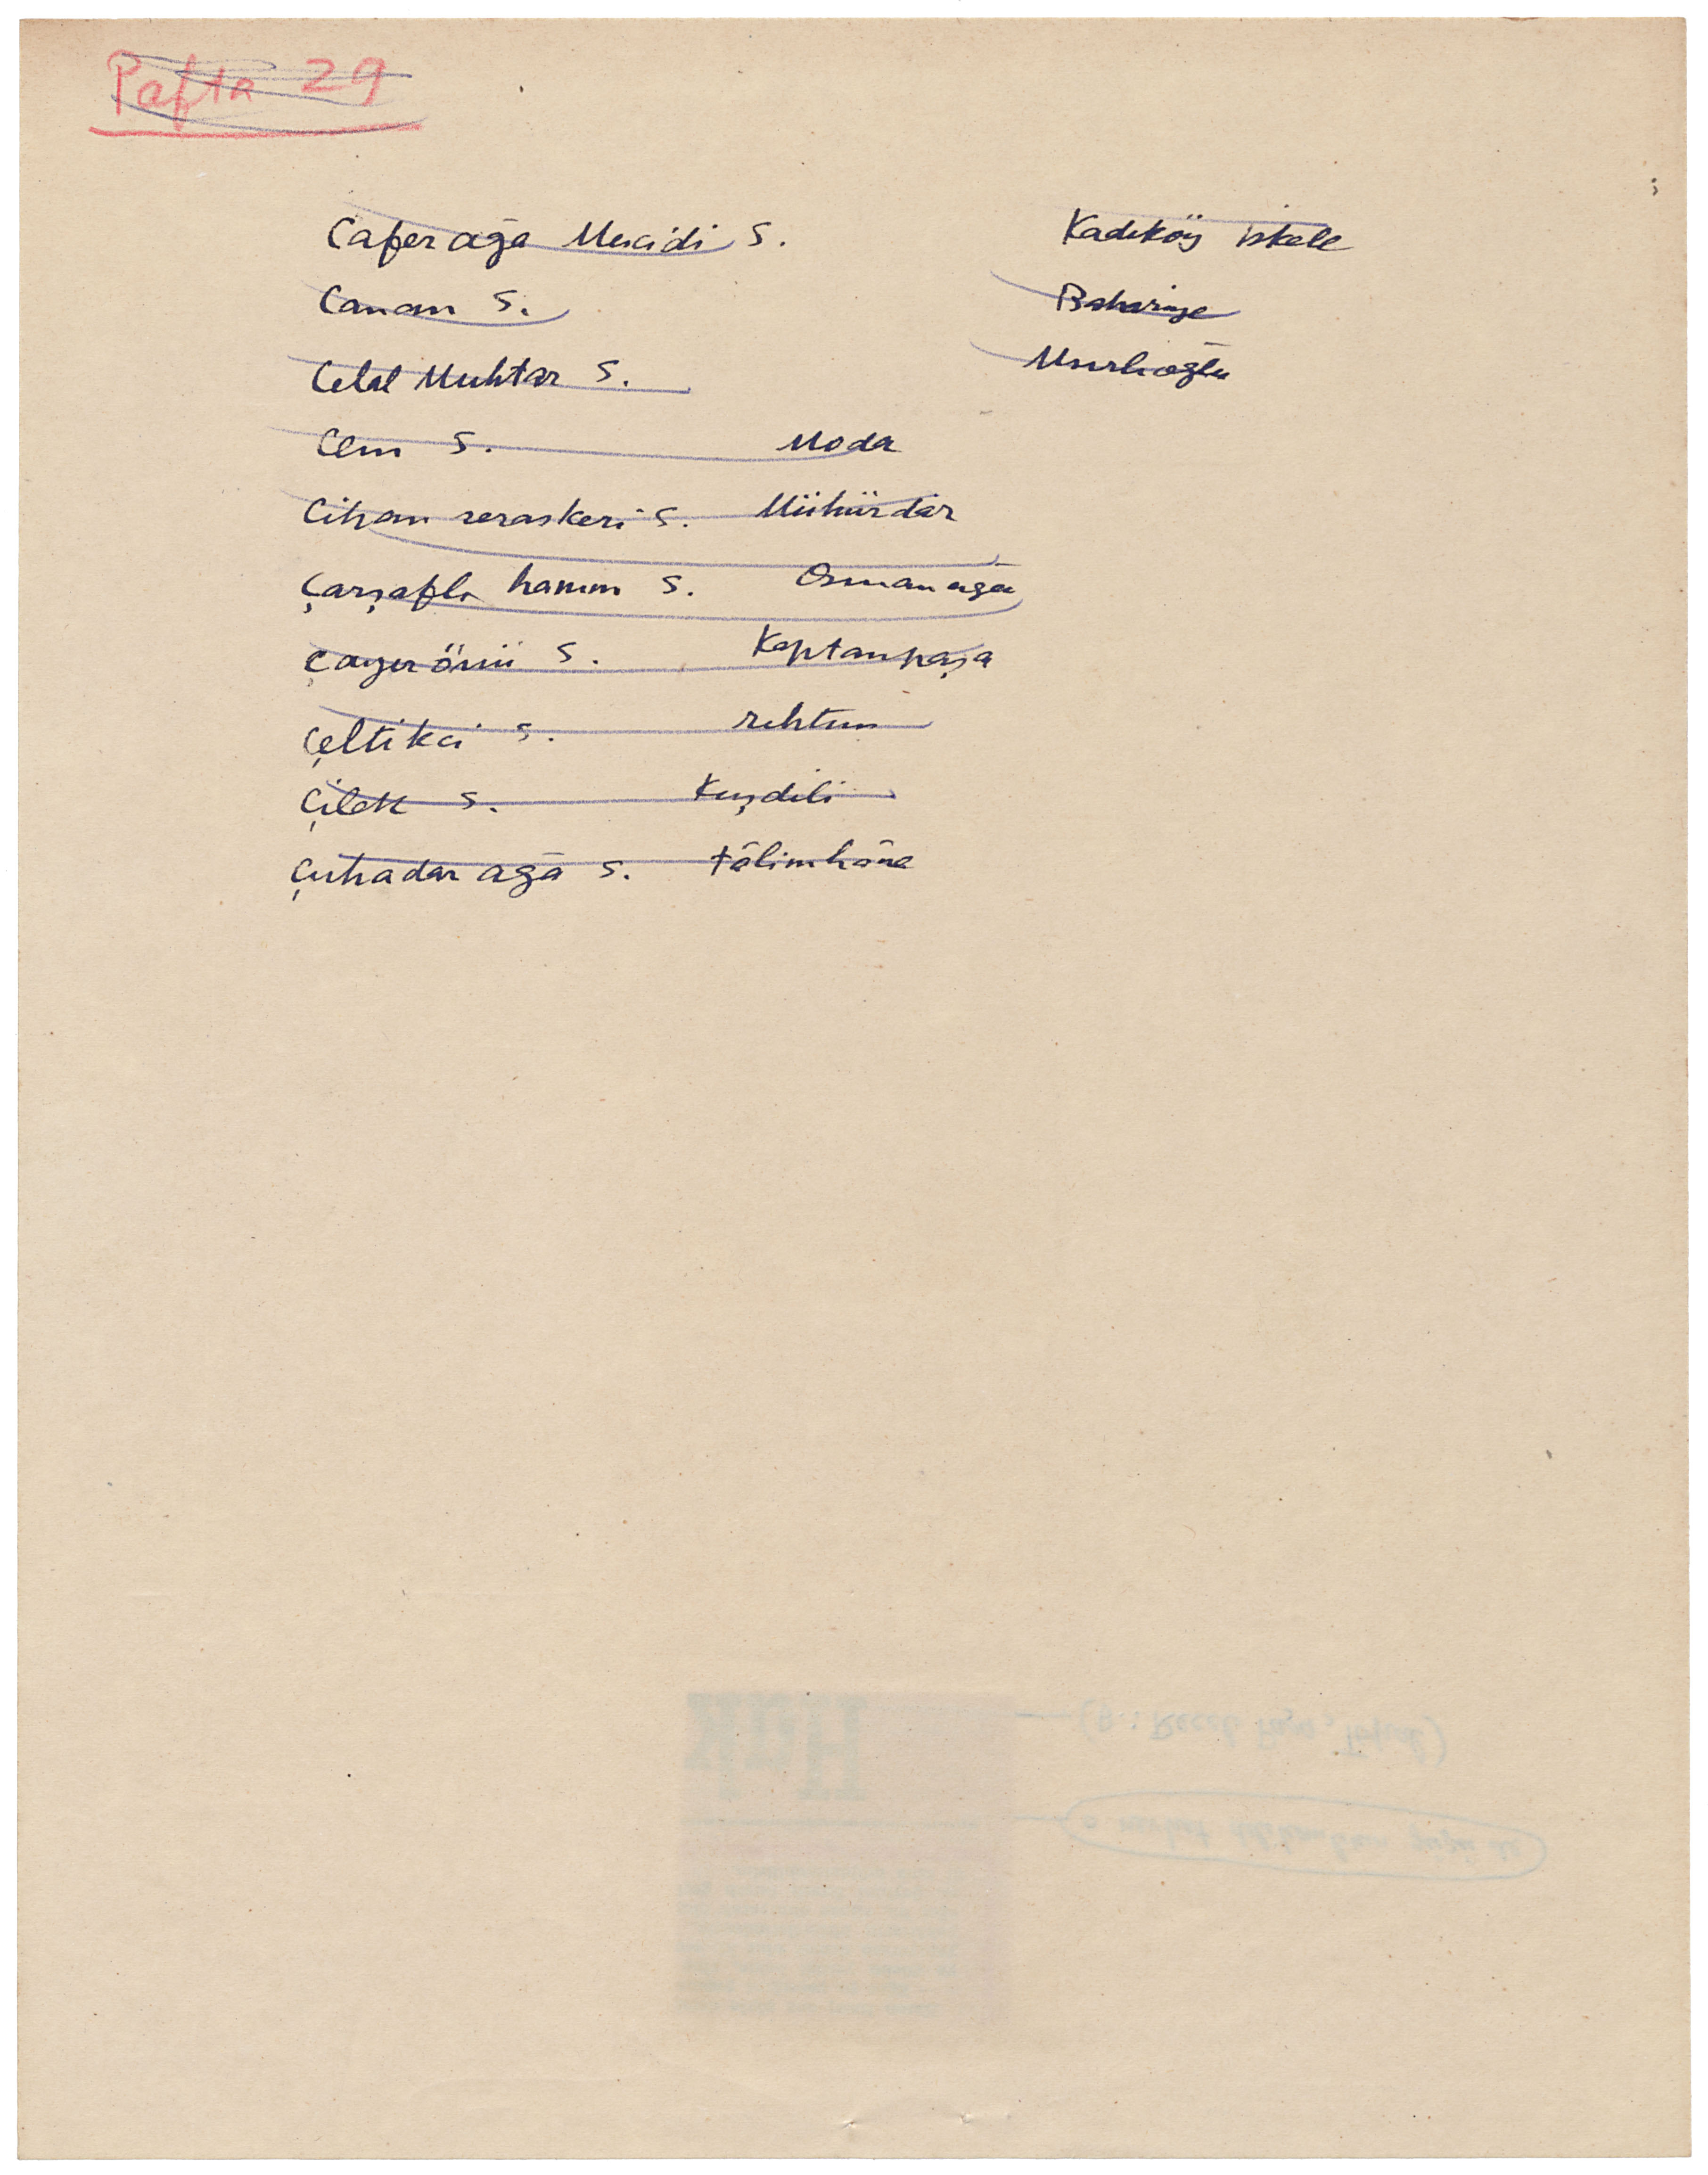 Pafta 29
Caferağa Mescidi S. Kadıköy iskele
Canan S. Bahariye
Celal Muhtar S. Mısırlıoğlu
Cem S. Moda
Cihan seraskeri S. Mühürdar
Çarşaflı hanım S. Osmanağa
Çayırönü S. Kaptanpaşa
Çeltikci S. rıhtım
Çilek S. Kuşdili
Çuhadar ağa S. tâlimhâne